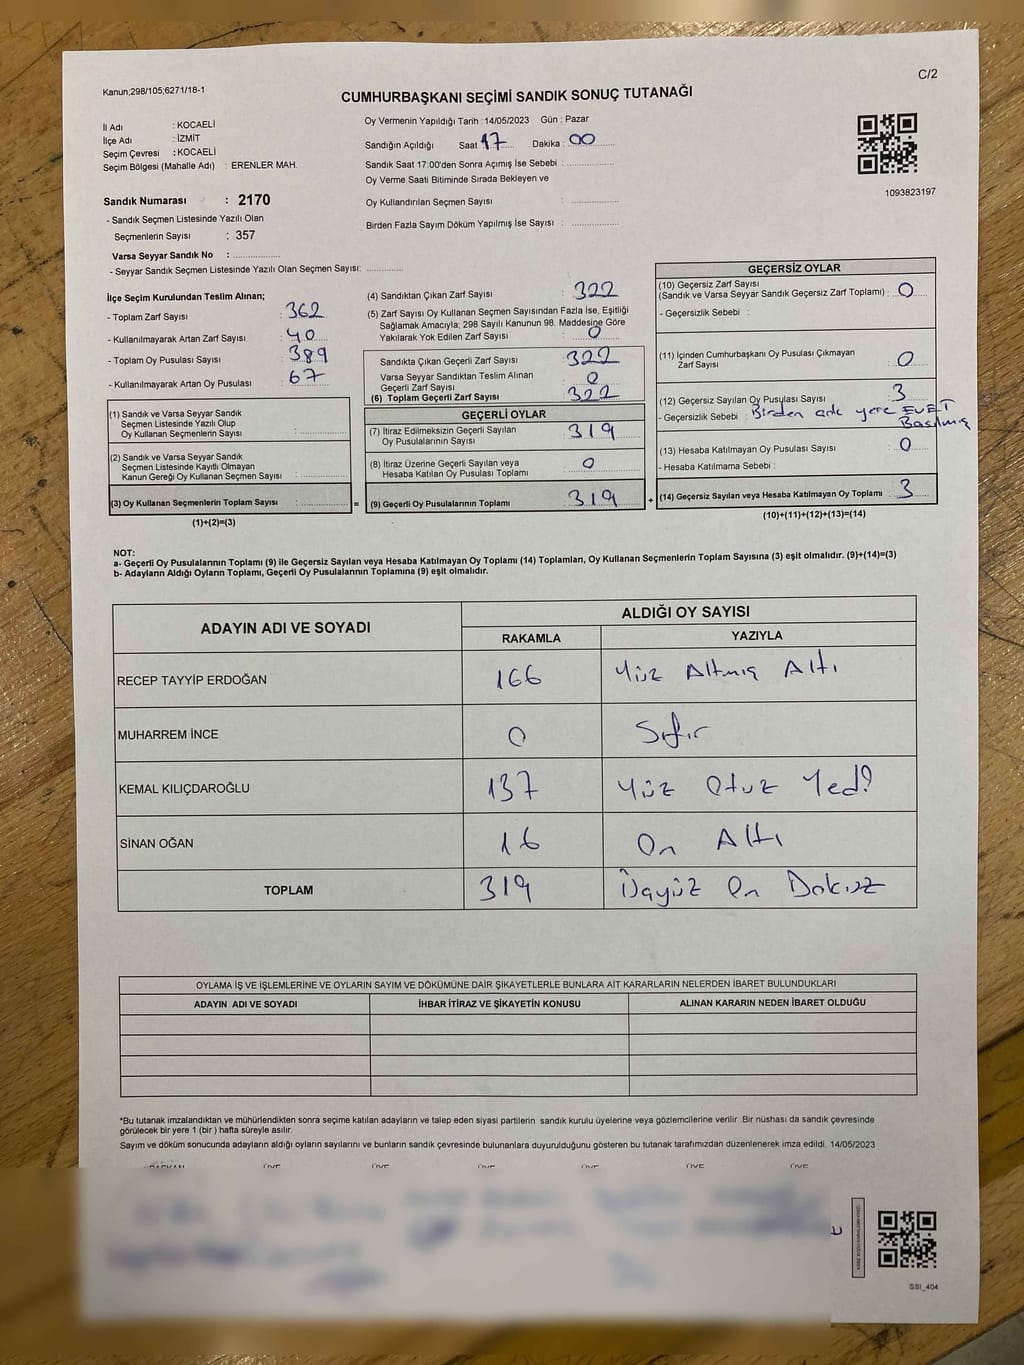 C/2
Kanun;298/105;6271/18-1
CUMHURBAŞKANI SEÇİMİ SANDIK SONUÇ TUTANAĞI
İl Adı : KOCAELİ
İlçe Adı : İZMİT
Seçim Çevresi : KOCAELİ
Seçim Bölgesi (Mahalle Adı) : ERENLER MAH.
Sandık Numarası : 2170
- Sandık Seçmen Listesinde Yazılı Olan
Seçmenlerin Sayısı : 357
Varsa Seyyar Sandık No :
- Seyyar Sandık Seçmen Listesinde Yazılı Olan Seçmen Sayısı:
Oy Vermenin Yapıldığı Tarih : 14/05/2023 Gün : Pazar
Sandığın Açıldığı Saat 17 Dakika : 00
Sandık Saat 17:00'den Sonra Açımış İse Sebebi :
Oy Verme Saati Bitiminde Sırada Bekleyen ve
Oy Kullandırılan Seçmen Sayısı
Birden Fazla Sayım Döküm Yapılmış İse Sayısı :
1093823197
İlçe Seçim Kurulundan Teslim Alınan;
- Toplam Zarf Sayısı : 362
- Kullanılmayarak Artan Zarf Sayısı : 40
- Toplam Oy Pusulası Sayısı : 389
- Kullanılmayarak Artan Oy Pusulası : 67
(1) Sandık ve Varsa Seyyar Sandık
Seçmen Listesinde Yazılı Olup
Oy Kullanan Seçmenlerin Sayısı :
(2) Sandık ve Varsa Seyyar Sandık
Seçmen Listesinde Kayıtlı Olmayan
Kanun Gereği Oy Kullanan Seçmen Sayısı :
(3) Oy Kullanan Seçmenlerin Toplam Sayısı :
(1)+(2)=(3)
(4) Sandıktan Çıkan Zarf Sayısı : 322
(5) Zarf Sayısı Oy Kullanan Seçmen Sayısından Fazla İse, Eşitliği
Sağlamak Amacıyla; 298 Sayılı Kanunun 98. Maddesine Göre
Yakılarak Yok Edilen Zarf Sayısı : 0
Sandıkta Çıkan Geçerli Zarf Sayısı : 322
Varsa Seyyar Sandıktan Teslim Alınan
Geçerli Zarf Sayısı : 0
(6) Toplam Geçerli Zarf Sayısı : 322
GEÇERLİ OYLAR
(7) İtiraz Edilmeksizin Geçerli Sayılan
Oy Pusulalarının Sayısı : 319
(8) İtiraz Üzerine Geçerli Sayılan veya
Hesaba Katılan Oy Pusulası Toplamı : 0
= (9) Geçerli Oy Pusulalarının Toplamı : 319
GEÇERSİZ OYLAR
(10) Geçersiz Zarf Sayısı
(Sandık ve Varsa Seyyar Sandık Geçersiz Zarf Toplamı) : 0
- Geçersizlik Sebebi :
(11) İçinden Cumhurbaşkanı Oy Pusulası Çıkmayan
Zarf Sayısı : 0
(12) Geçersiz Sayılan Oy Pusulası Sayısı : 3
- Geçersizlik Sebebi : Birden çok yere EVET
Basılmış
(13) Hesaba Katılmayan Oy Pusulası Sayısı : 0
- Hesaba Katılmama Sebebi :
+ (14) Geçersiz Sayılan veya Hesaba Katılmayan Oy Toplamı : 3
(10)+(11)+(12)+(13)=(14)
NOT:
a- Geçerli Oy Pusulalarının Toplamı (9) ile Geçersiz Sayılan veya Hesaba Katılmayan Oy Toplamı (14) Toplamları, Oy Kullanan Seçmenlerin Toplam Sayısına (3) eşit olmalıdır. (9)+(14)=(3)
b- Adayların Aldığı Oyların Toplamı, Geçerli Oy Pusulalarının Toplamına (9) eşit olmalıdır.
ADAYIN ADI VE SOYADI
ALDIĞI OY SAYISI
RAKAMLA YAZIYLA
RECEP TAYYİP ERDOĞAN 166 Yüz Altmış Altı
MUHARREM İNCE 0 Sıfır
KEMAL KILIÇDAROĞLU 137 Yüz Otuz Yedi
SİNAN OĞAN 16 On Altı
TOPLAM 319 Üçyüz On Dokuz
OYLAMA İŞ VE İŞLEMLERİNE VE OYLARIN SAYIM VE DÖKÜMÜNE DAİR ŞİKAYETLERLE BUNLARA AİT KARARLARIN NELERDEN İBARET BULUNDUKLARI
ADAYIN ADI VE SOYADI İHBAR İTİRAZ VE ŞİKAYETİN KONUSU ALINAN KARARIN NEDEN İBARET OLDUĞU
*Bu tutanak imzalandıktan ve mühürlendikten sonra seçime katılan adayların ve talep eden siyasi partilerin sandık kurulu üyelerine veya gözlemcilerine verilir .Bir nüshası da sandık çevresinde
görülecek bir yere 1 (bir ) hafta süreyle asılır.
Sayım ve döküm sonucunda adayların aldığı oyların sayılarını ve bunların sandık çevresinde bulunanlara duyurulduğunu gösteren bu tutanak tarafımızdan düzenlenerek imza edildi. 14/05/2023
BAŞKAN ÜYE ÜYE ÜYE ÜYE ÜYE ÜYE
SSI_404